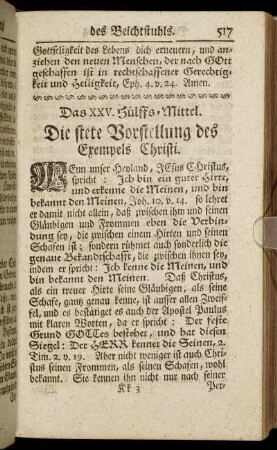 des Beichtstuhls. 517
Gottseligkeit des Lebens dich erneuern, und an-
ziehen den neuen Menschen, der nach GOtt
geschaffen ist in rechtschaffener Gerechtig-
keit und Heiligkeit, Eph. 4. v. 24. Amen.
Das XXV. Hülffs-Mittel.
Die stete Vorstellung des
Exempels Christi.
WEnn unser Heyland, JEsus Christus,
spricht: Ich bin ein guter Hirte,
und erkenne die Meinen, und bin
bekannt den Meinen, Joh. 10. v. 14. so lehret
er damit nicht allein, daß zwischen ihm und seinen
Gläubigen und Frommen eben die Verbin-
dung sey, die zwischen einem Hirten und seinen
Schafen ist; sondern rühmet auch sonderlich die
genaue Bekandtschafft, die zwischen ihnen sey,
indem er spricht: Ich kenne die Meinen, und
bin bekannt den Meinen. Daß Christus,
als ein treuer Hirte seine Gläubigen, als seine
Schafe, gantz genau kenne, ist ausser allen Zweif-
fel, und es bestätiget es auch der Apostel Paulus
mit klaren Worten, da er spricht: Der feste
Grund GOTTes bestehet, und hat dieser
Siegel: Der HERR kennet die Seinen, 2.
Tim. 2. v. 19. Aber nicht weniger ist auch Chri-
stus seinen Frommen, als seinen Schafen, wohl
bekannt. Sie kennen ihn nicht nur nach seiner
Kk 3 Per-